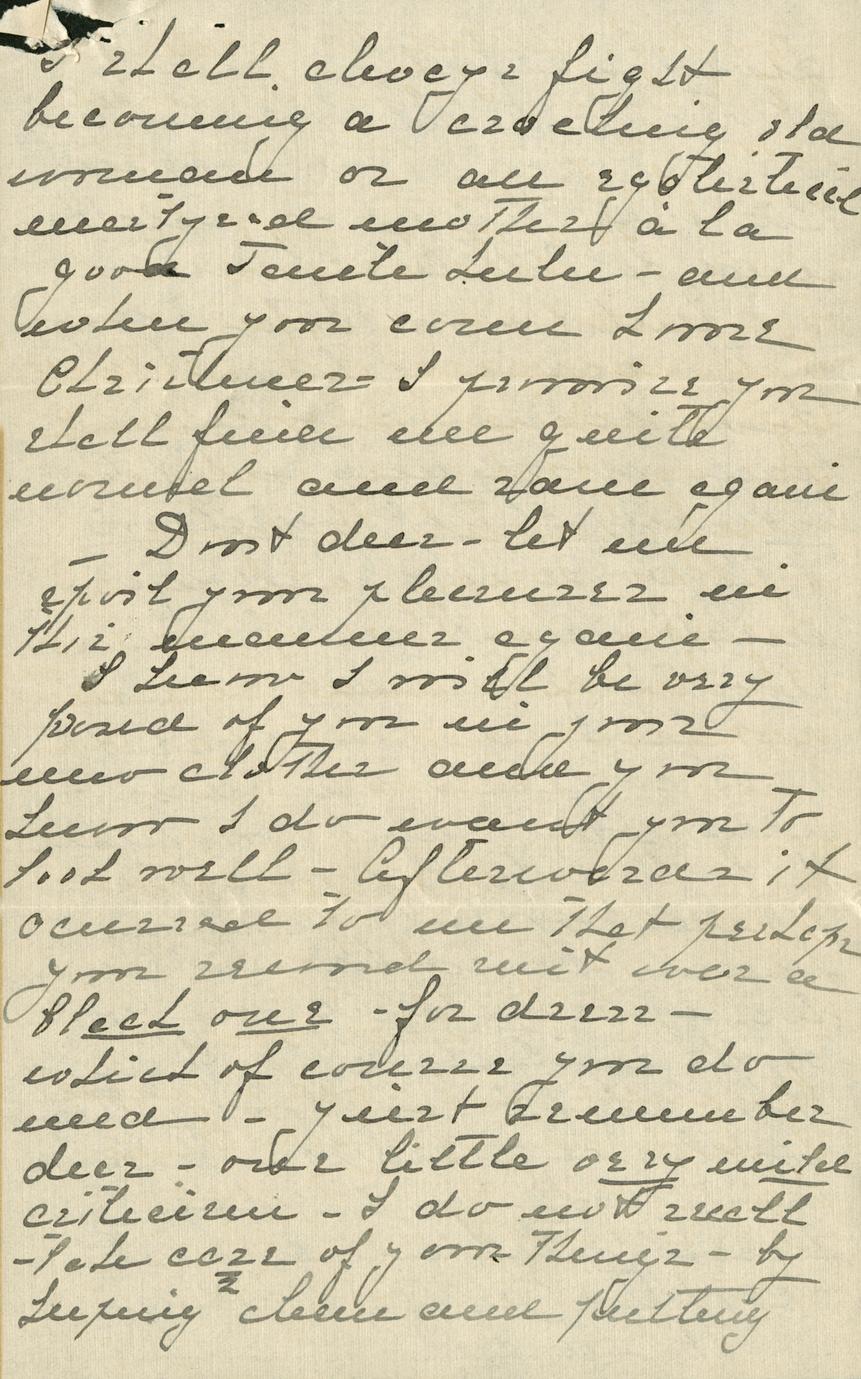 I shall always fight
becoming a croching old
woman or an egotistical
martyred mother à la
good Tante Lulu - and
when you come home
Christmas - I promise you
shall find me quite
normal and sane again
- Dont dear - let me
spoil your pleasures in
this manner again -
I know I will be very
proud of you in your
new clothes and you
know I do want you to
look well - Afterwards it
occurred to me that perhaps
your second suit was a
black one - for dress -
which of course you do
need - just remember
dear - our little very mild
criticism - I do not mell
- take care of your things - by
keeping clean and putting